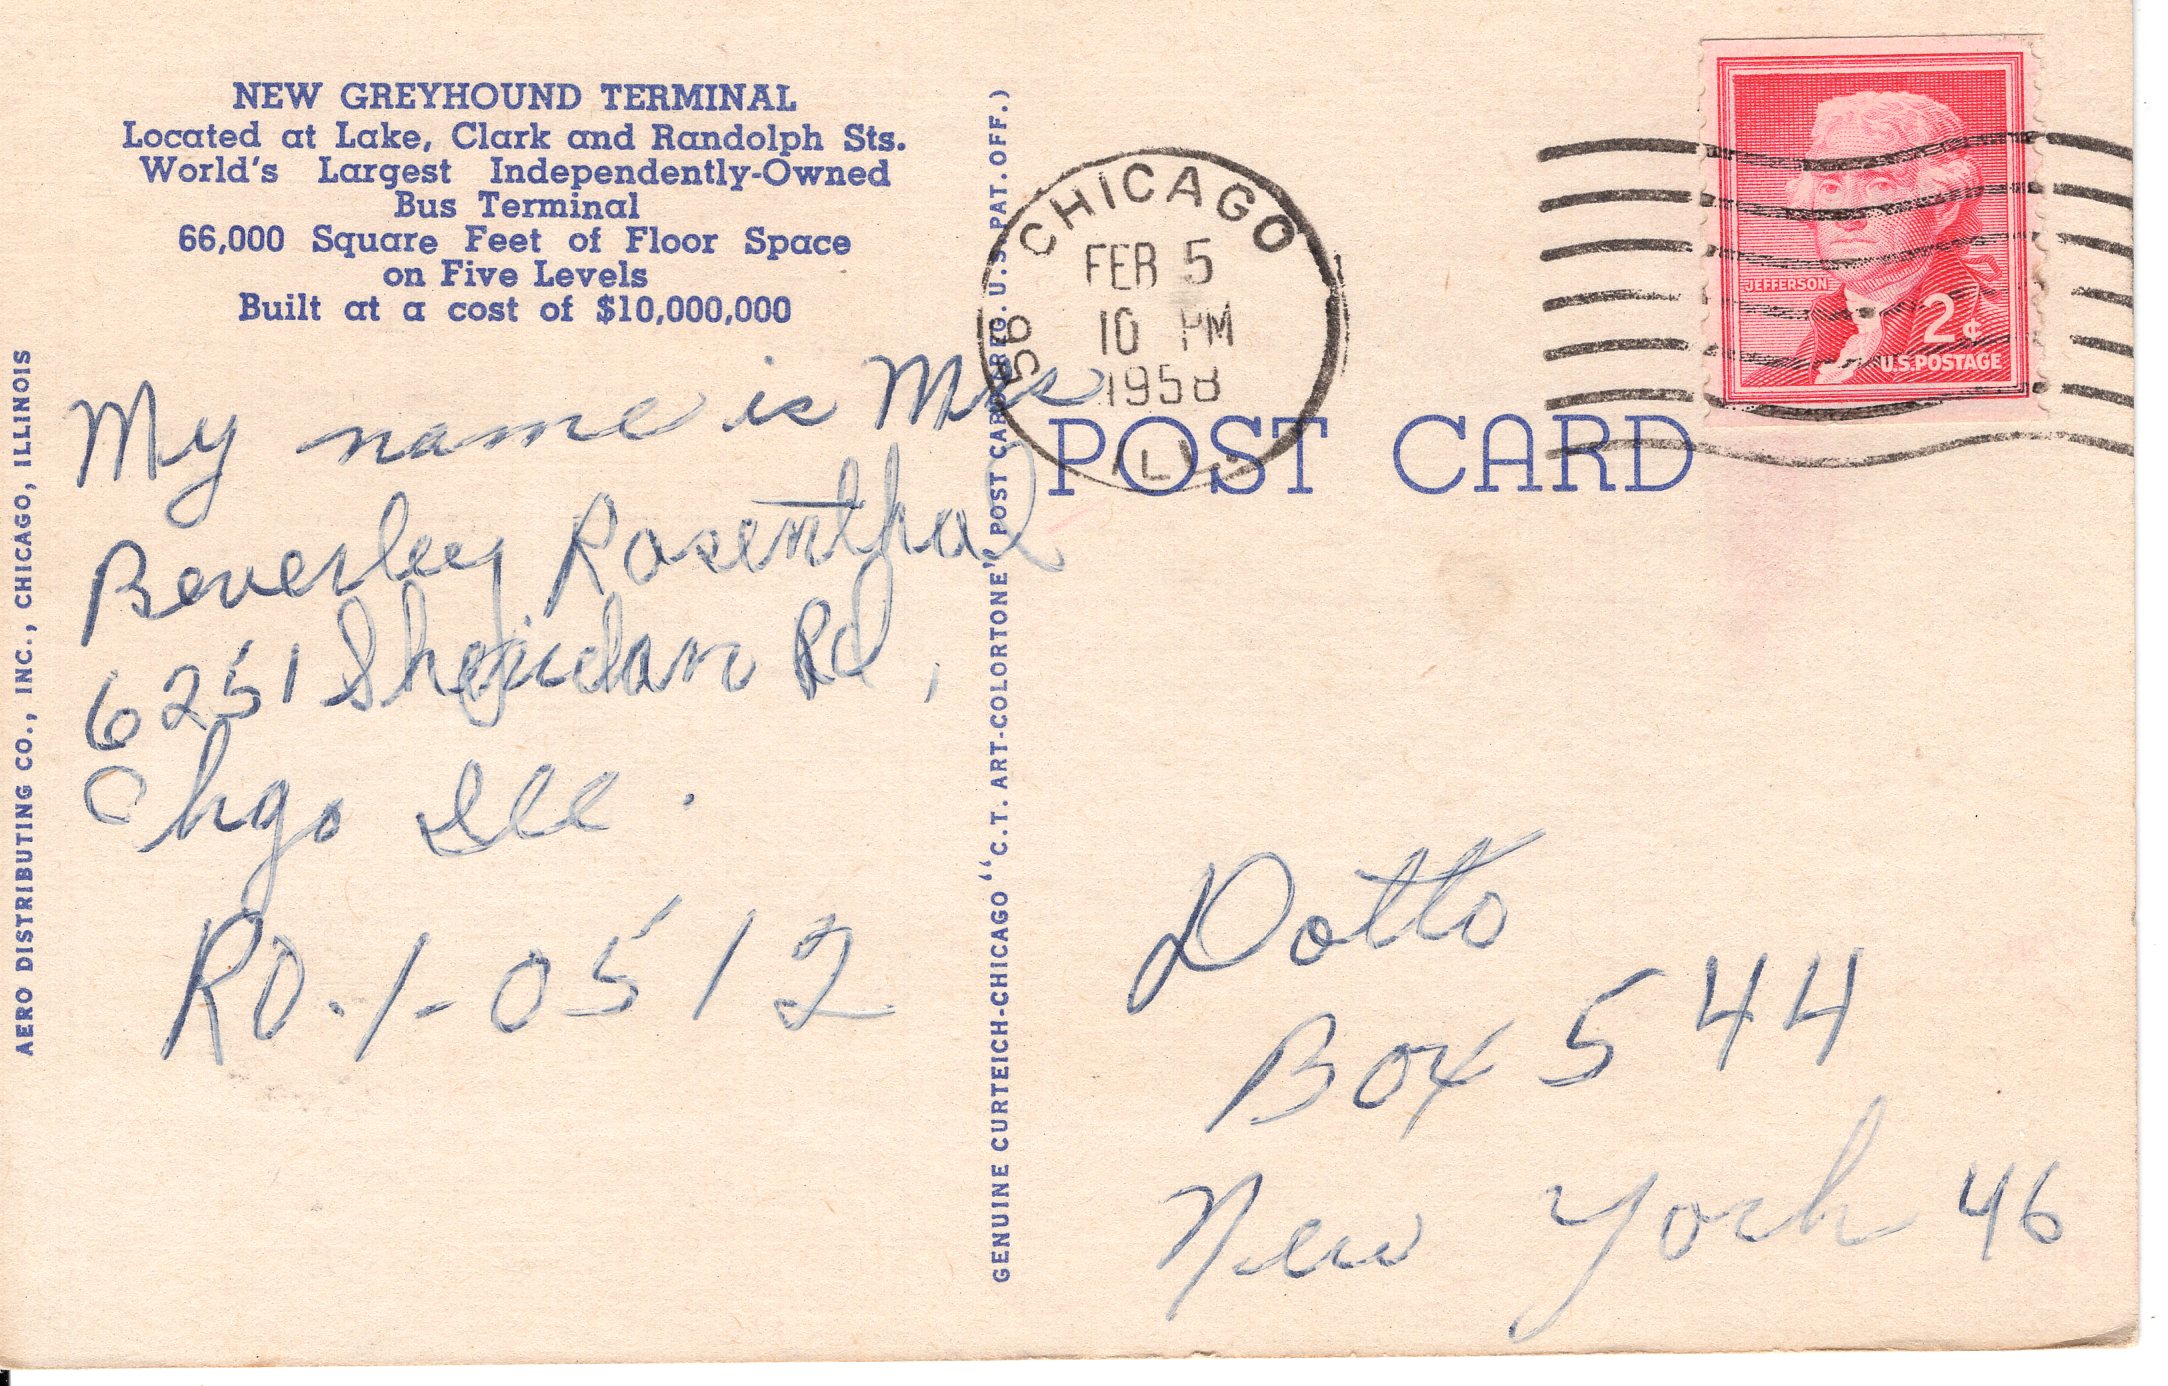 NEW GREYHOUND TERMINAL
Located at Lake, Clark and Randolph Sts.
World's Largest Independently-Owned
Bus Terminal
66,000 Square Feet of Floor Space
on Five Levels
Built at a cost of $10,000,000
My name is Mrs
Beverley Rosenthal
6251 Sheridan Rd,
Chgo Ill.
RO.1-0512
AERO DISTRIBUTING CO., INC., CHICAGO, ILLINOIS
GENUINE CURTEICH-CHICAGO "C.T. ART-COLORTONE" POST CARD REG. U.S. PAT. OFF.)
CHICAGO
FEB 5
10 PM
1958
56
ILL.
JEFFERSON
2¢
U.S. POSTAGE
POST CARD
Dotto
Box 544
New York 46